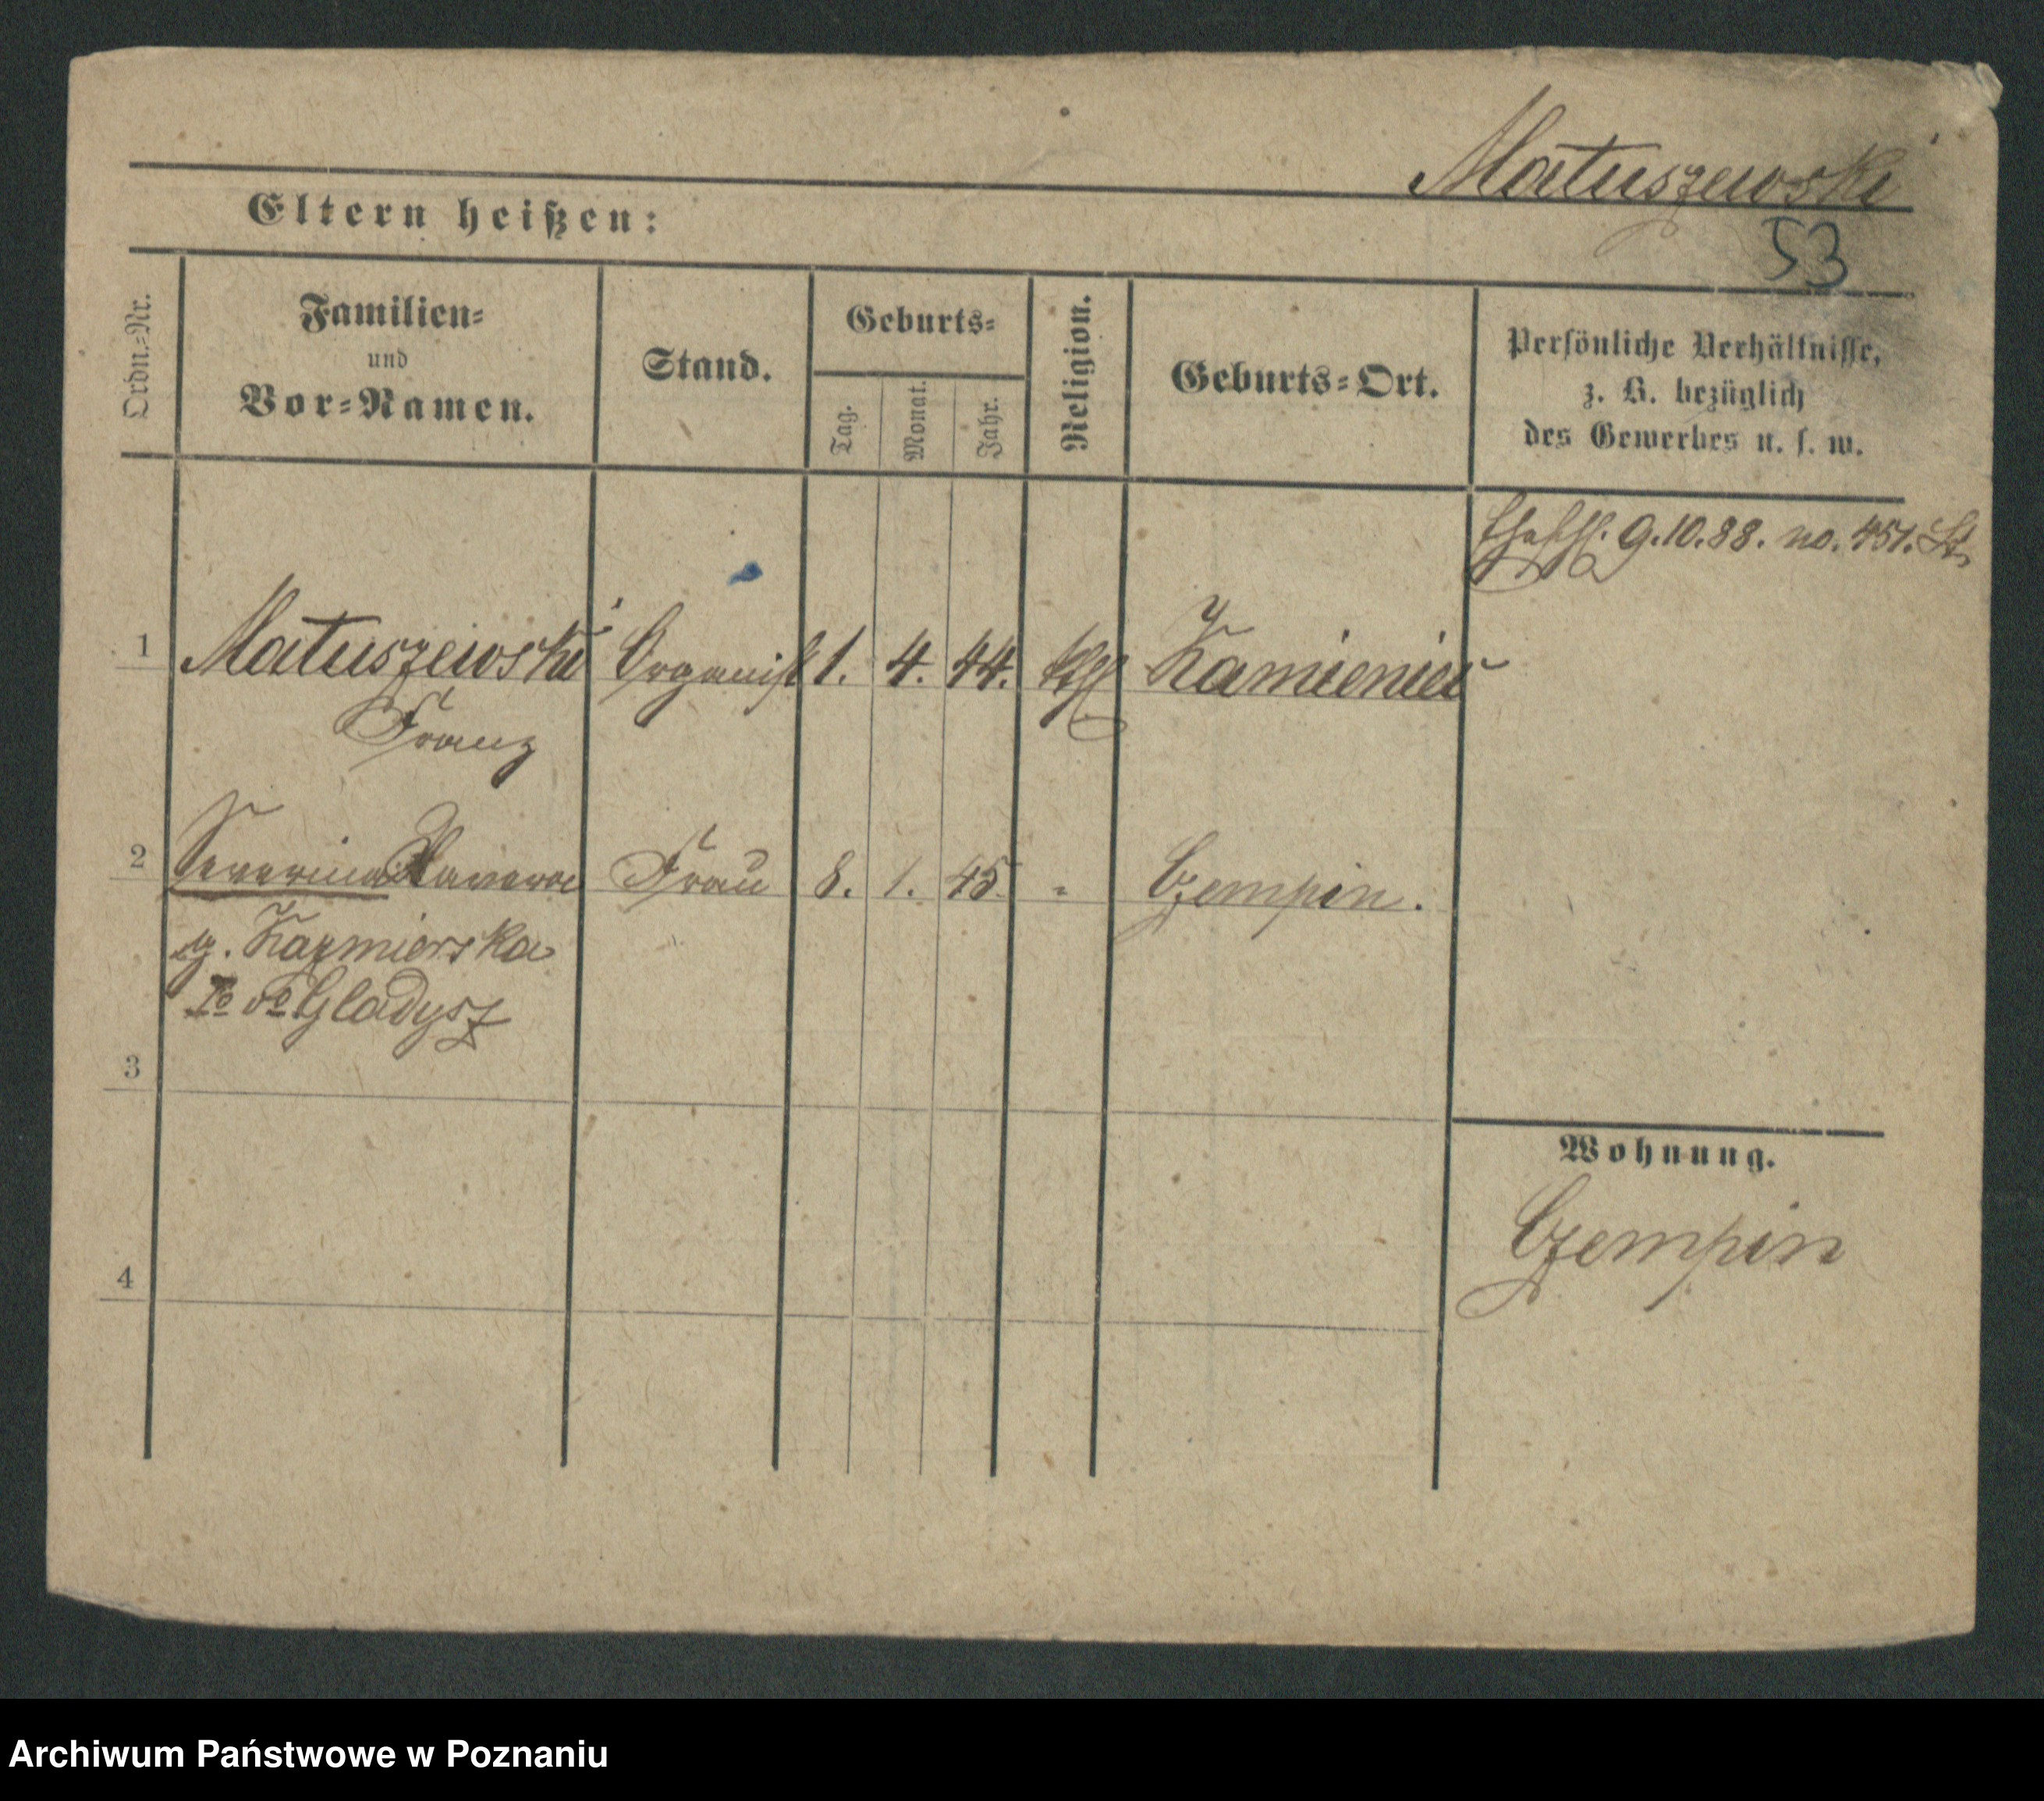 Matuszewski
53
Eltern heißen:
Ordn.-Nr.
Familien-
und
Vor-Namen.
Stand.
Geburts-
Tag.
Monat.
Jahr.
Religion.
Geburts-Ort.
Persönliche Verhältnisse,
z. B. bezüglich
des Gewerbes u. s. w.
9.10.88. no. 451. St.
1 Matuszewski Organist 1. 4. 44. kth Kamieniec
Franz
2 Severina Xavera Frau 8. 1. 45. " Czempin.
g. Kazmierska
Io vo Gladysz
3
Wohnung.
Czempin
4
Archiwum Państwowe w Poznaniu